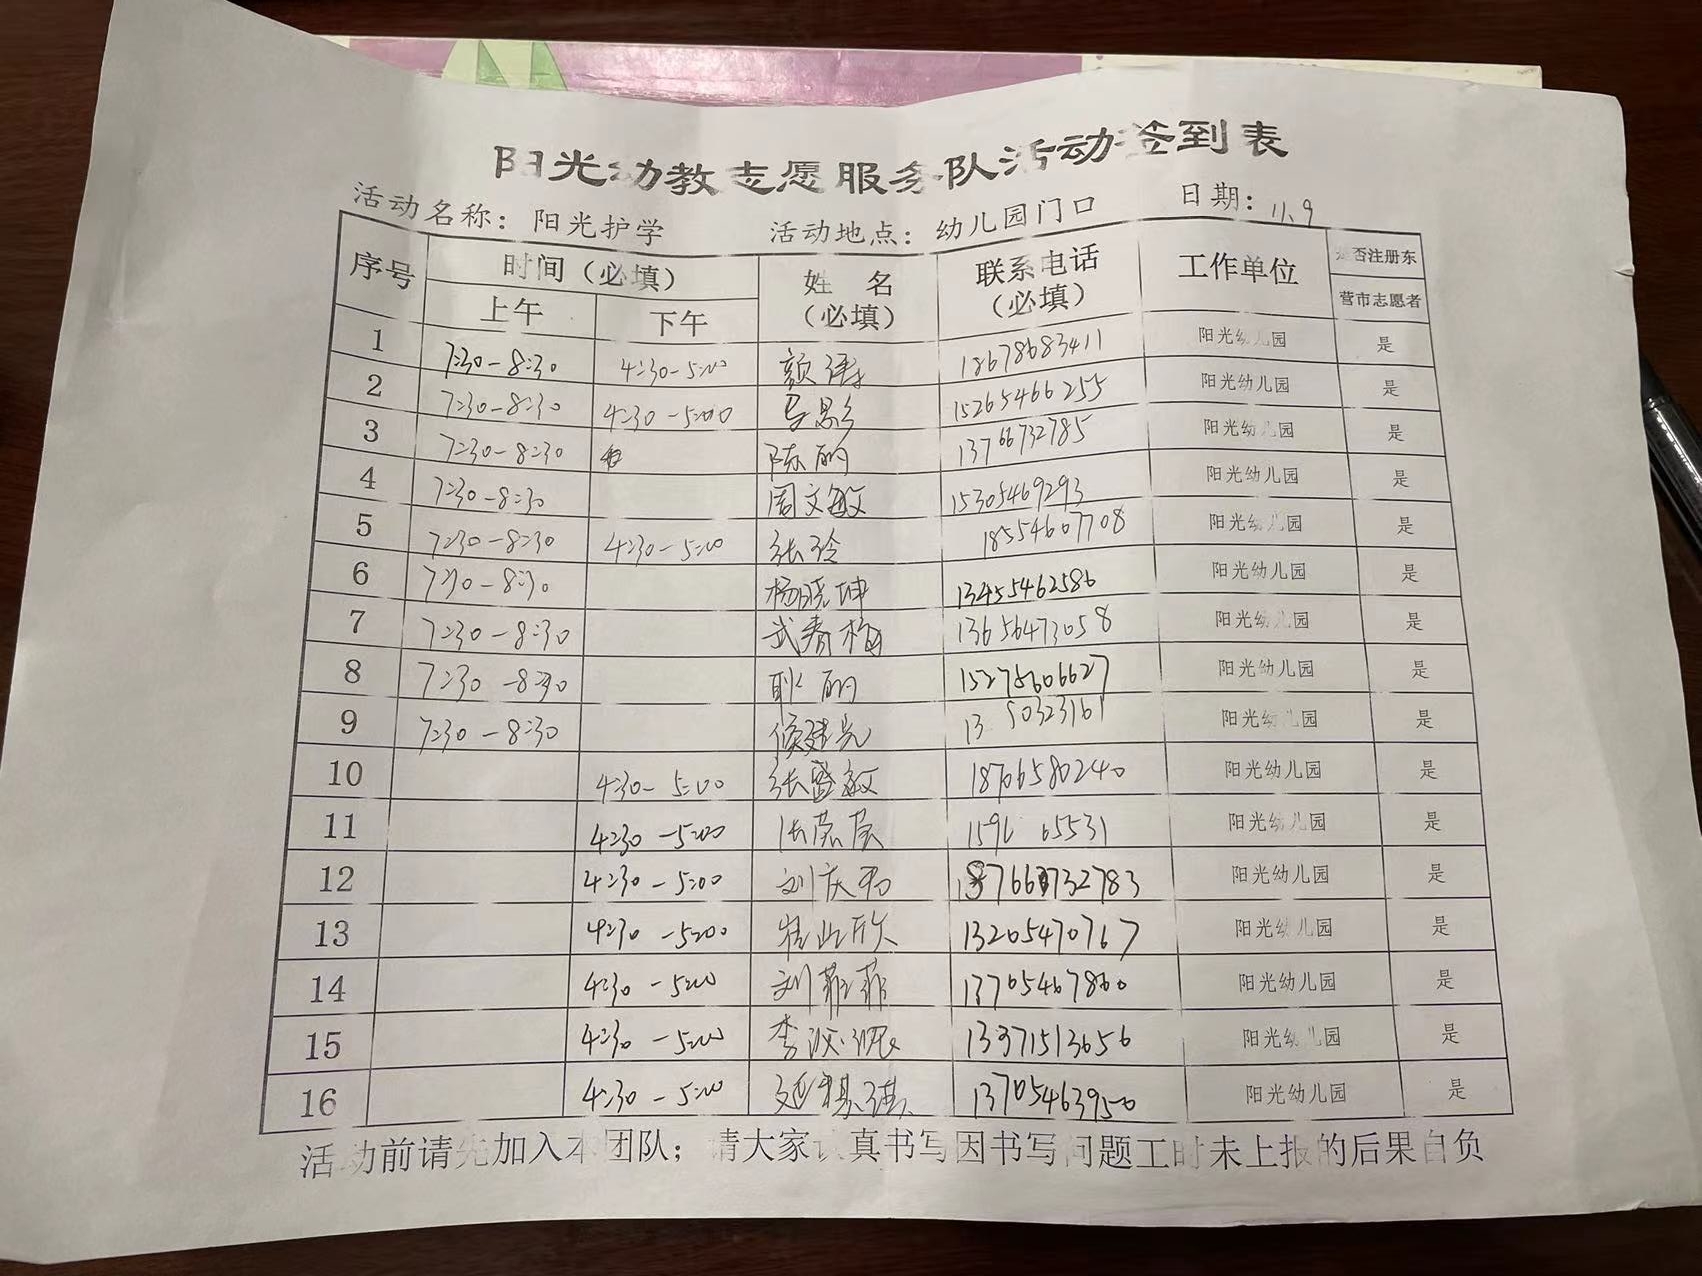 阳光幼教志愿服务队活动签到表
活动名称：阳光护学 活动地点：幼儿园门口 日期：11.9
序号 时间（必填） 姓名（必填） 联系电话（必填） 工作单位 是否注册东营市志愿者
上午 下午
1 7:30-8:30 4:30-5:00 颜 18678683411 阳光幼儿园 是
2 7:30-8:30 4:30-5:00 马影 15265466255 阳光幼儿园 是
3 7:30-8:30 陈丽 13766732785 阳光幼儿园 是
4 7:30-8:30 周文敏 15305469293 阳光幼儿园 是
5 7:30-8:30 4:30-5:00 张玲 18554607708 阳光幼儿园 是
6 7:30-8:30 杨晓坤 13455462586 阳光幼儿园 是
7 7:30-8:30 武春梅 13656473058 阳光幼儿园 是
8 7:30-8:30 耿丽 15275606627 阳光幼儿园 是
9 7:30-8:30 侯建光 阳光幼儿园 是
10 4:30-5:00 张盛敏 18706580240 阳光幼儿园 是
11 4:30-5:00 阳光幼儿园 是
12 4:30-5:00 刘庆 阳光幼儿园 是
13 4:30-5:00 崔此欣 13205470767 阳光幼儿园 是
14 4:30-5:00 刘菲菲 13705467860 阳光幼儿园 是
15 4:30-5:00 李 13371513656 阳光幼儿园 是
16 4:30-5:00 13705463950 阳光幼儿园 是
活动前请先加入本团队；请大家认真书写因书写问题工时未上报的后果自负